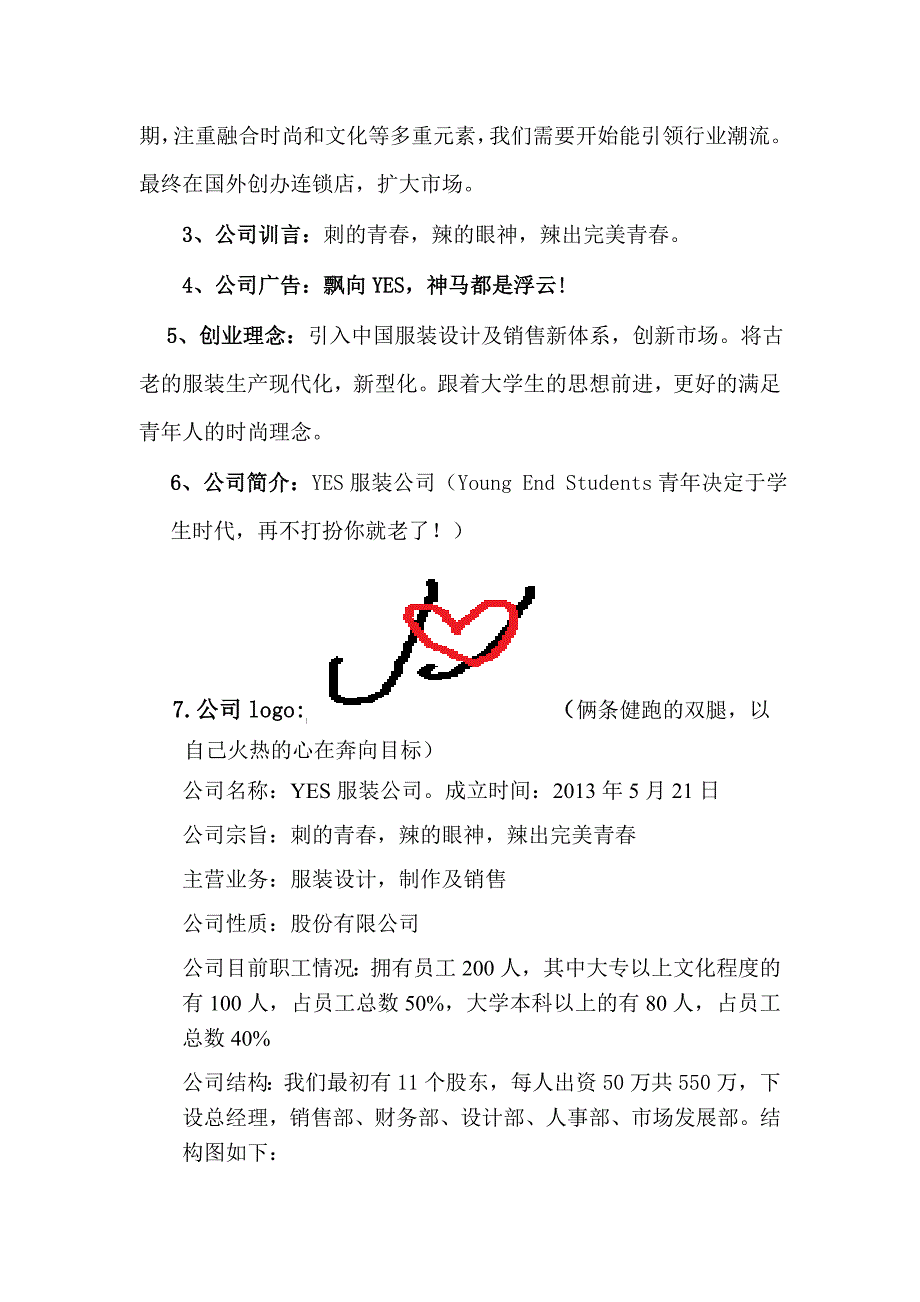 期,注重融合时尚和文化等多重元素,我们需要开始能引领行业潮流。
最终在国外创办连锁店，扩大市场。
3、公司训言：刺的青春，辣的眼神，辣出完美青春。
4、公司广告：飘向YES，神马都是浮云!
5、创业理念：引入中国服装设计及销售新体系，创新市场。将古
老的服装生产现代化，新型化。跟着大学生的思想前进，更好的满足
青年人的时尚理念。
6、公司简介：YES服装公司（Young End Students青年决定于学
生时代，再不打扮你就老了！）
7.公司logo:（俩条健跑的双腿，以
自己火热的心在奔向目标）
公司名称：YES服装公司。成立时间：2013年5月21日
公司宗旨：刺的青春，辣的眼神，辣出完美青春
主营业务：服装设计，制作及销售
公司性质：股份有限公司
公司目前职工情况：拥有员工200人，其中大专以上文化程度的
有100人，占员工总数50%，大学本科以上的有80人，占员工
总数40%
公司结构：我们最初有11个股东，每人出资50万共550万，下
设总经理，销售部、财务部、设计部、人事部、市场发展部。结
构图如下：